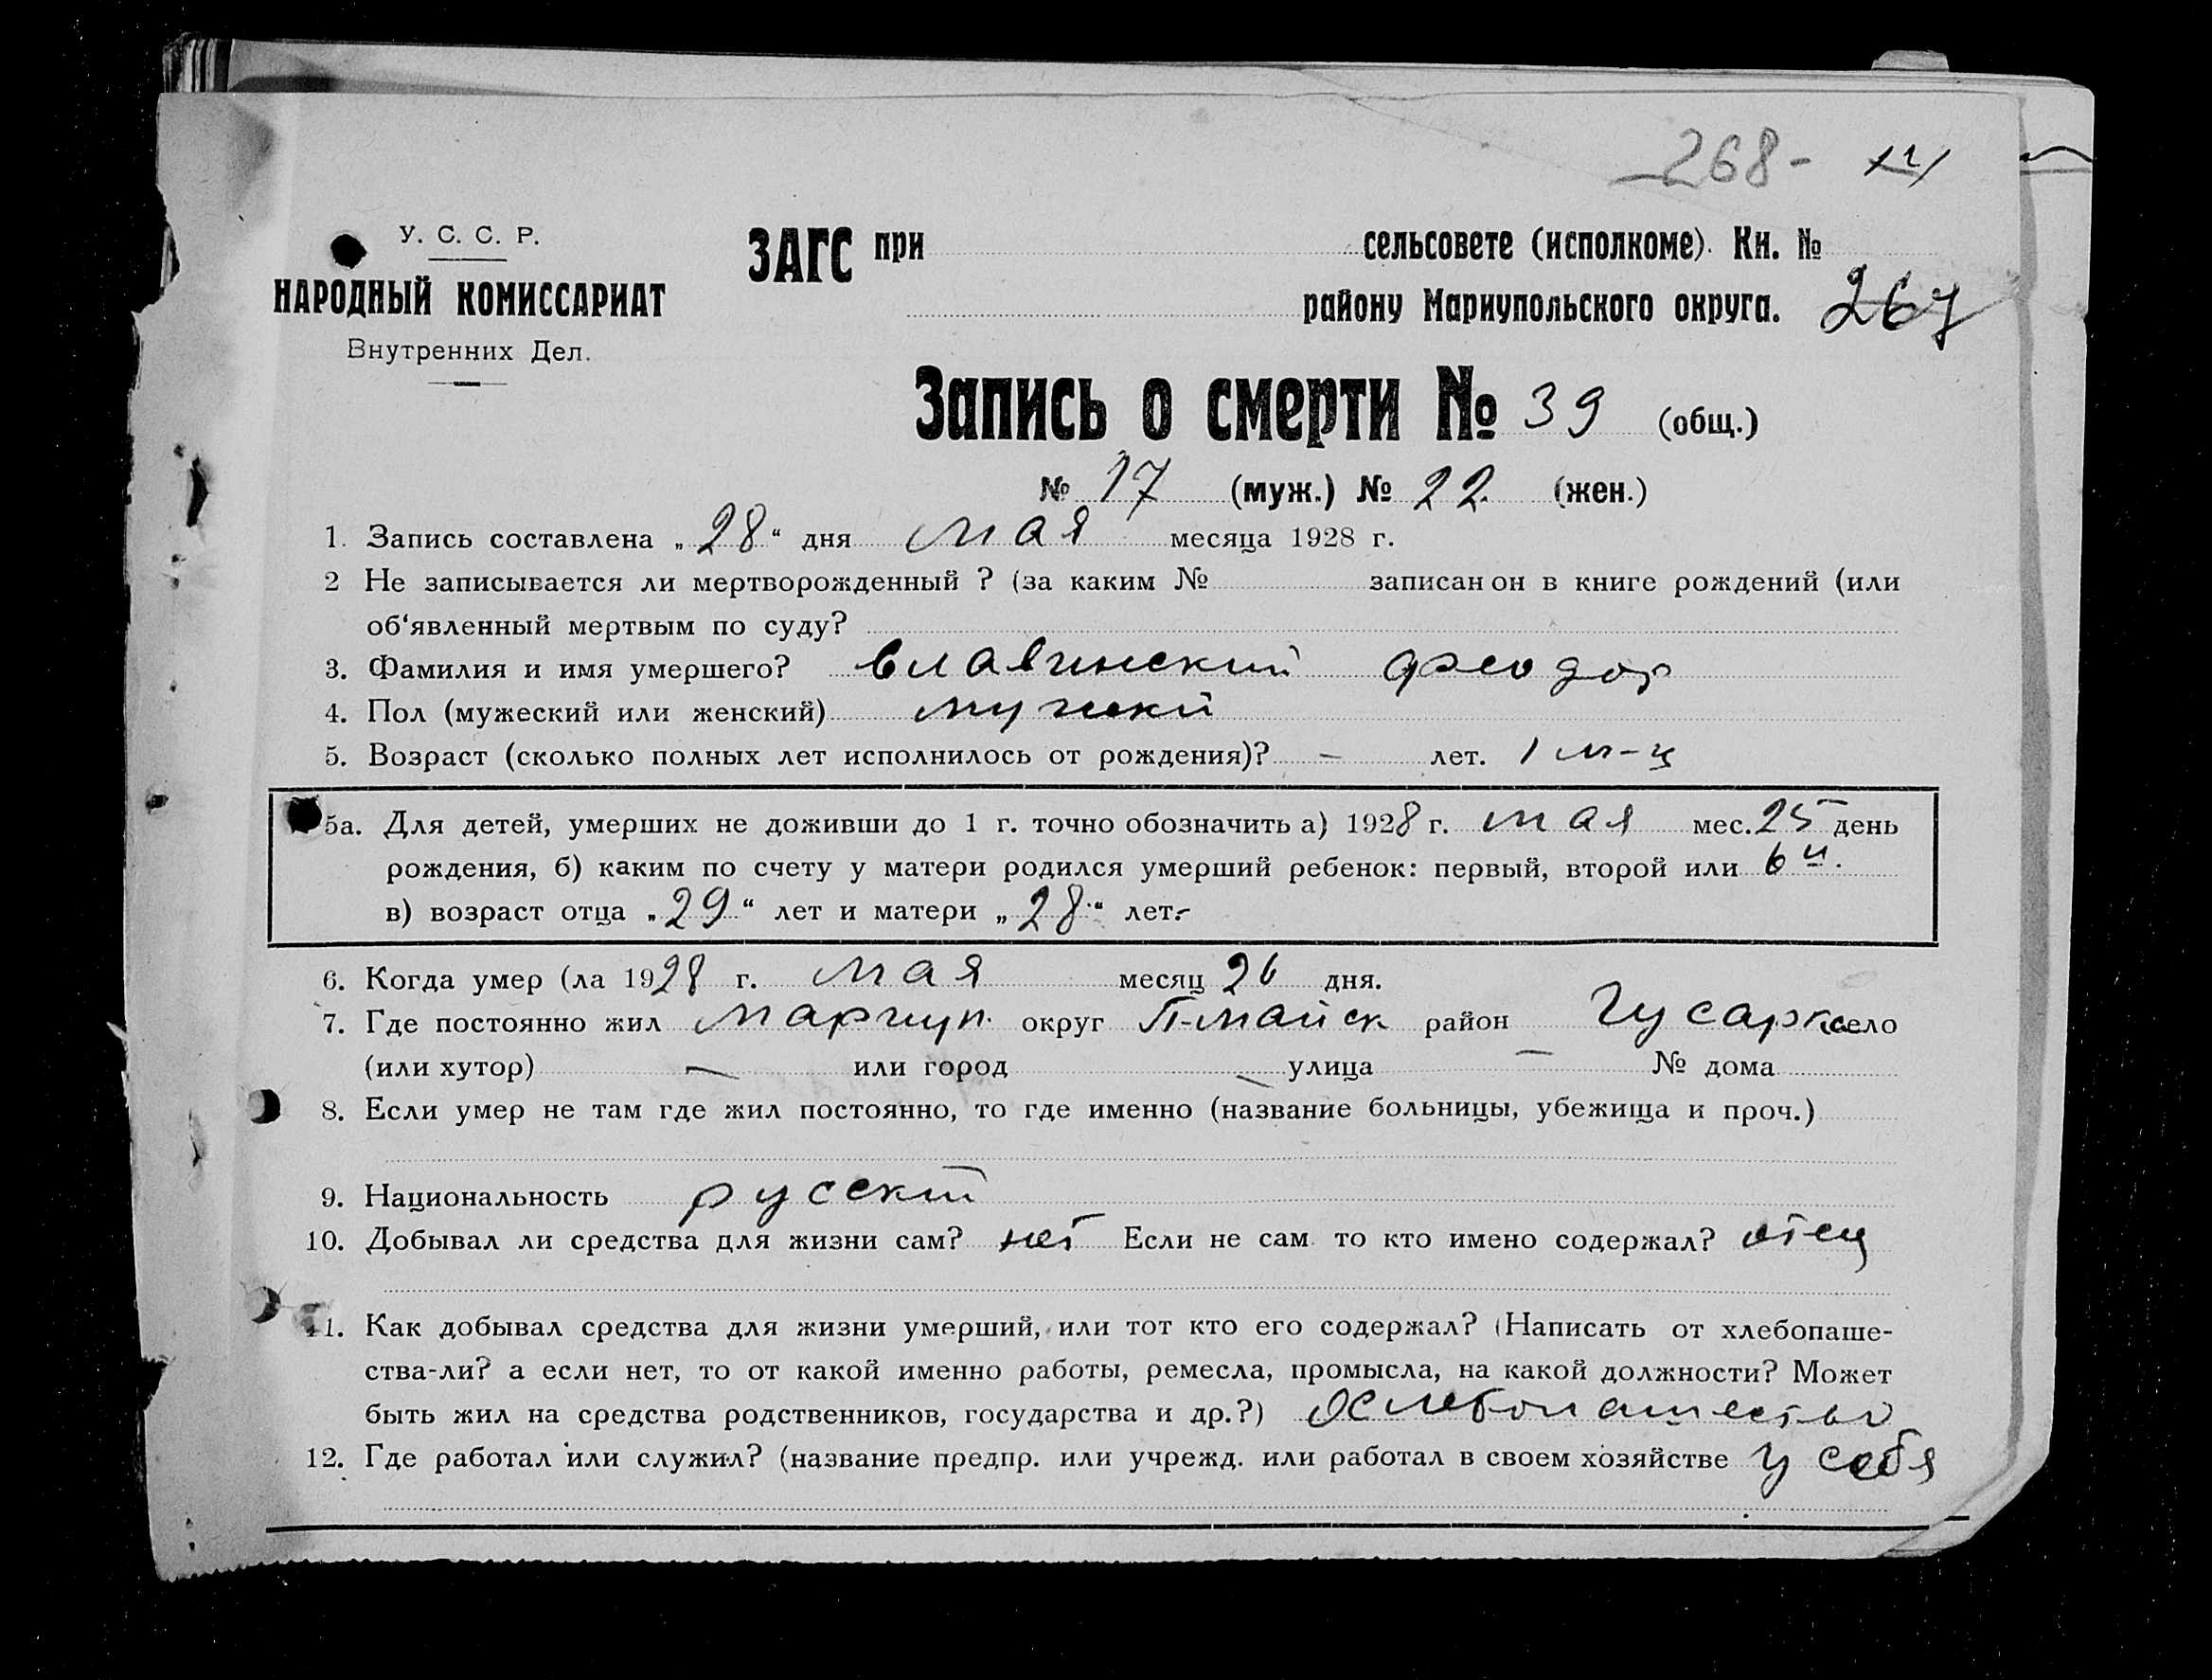 268-
У. С. С. Р.
НАРОДНЫЙ КОМИССАРИАТ
Внутренних Дел.
ЗАГС при сельсовете (исполкоме). Кн. №
району Мариупольского округа. 267
Запись о смерти № 39 (общ.)
№ 17 (муж.) № 22. (жен.)
1. Запись составлена „28“ дня мая месяца 1928 г.
2 Не записывается ли мертворожденный ? (за каким № записан он в книге рождений (или
об‘явленный мертвым по суду?
3. Фамилия и имя умершего? Феодор
4. Пол (мужеский или женский) мужски
5. Возраст (сколько полных лет исполнилось от рождения)? – лет. 1 м-ц
5а. Для детей, умерших не доживши до 1 г. точно обозначить а) 1928 г. мая мес. 25 день
рождения, б) каким по счету у матери родился умерший ребенок: первый, второй или 6й.
в) возраст отца „29“ лет и матери „28“ лет.-
6. Когда умер (ла 1928 г. мая месяц 26 дня.
7. Где постоянно жил Мариуп. округ П-майск район Гусарка село
(или хутор) — или город — улица — № дома
8. Если умер не там где жил постоянно, то где именно (название больницы, убежища и проч.)
9. Национальность русский
10. Добывал ли средства для жизни сам? нет Если не сам то кто имено содержал? отец
11. Как добывал средства для жизни умерший, или тот кто его содержал? (Написать от хлебопаше-
ства-ли? а если нет, то от какой именно работы, ремесла, промысла, на какой должности? Может
быть жил на средства родственников, государства и др.?) Хлебопашество
12. Где работал или служил? (название предпр. или учрежд. или работал в своем хозяйстве у себя